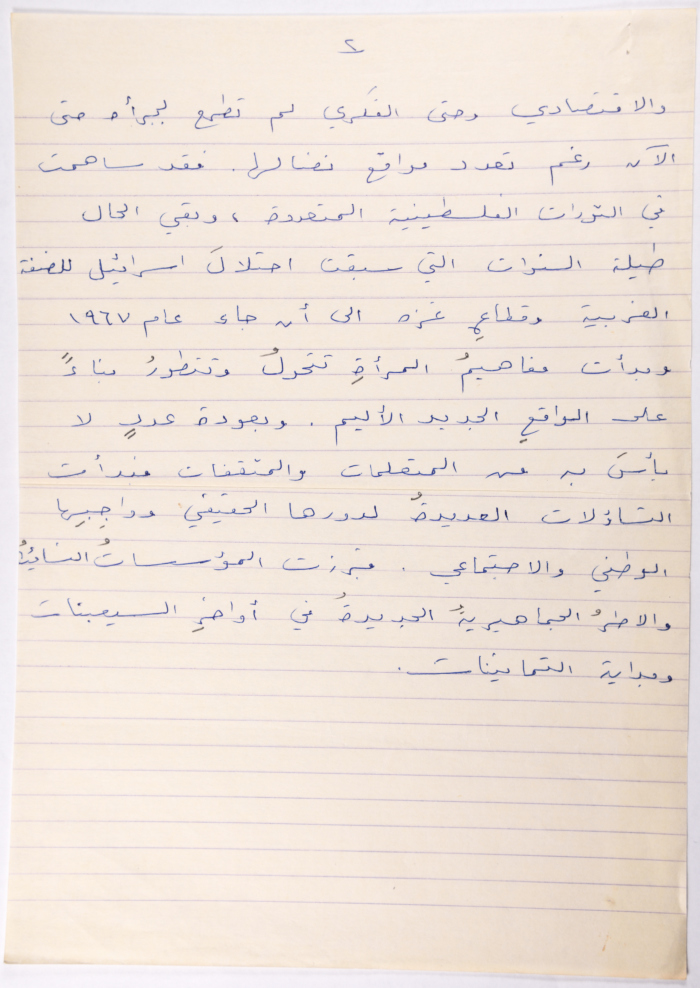 ٢
والاقتصادي وحتى الفكري لم تطمح بجرأه حتى
الآن رغم تعدد مواقع نضالها. فقد ساهمت
في الثورات الفلسطينية المتعددة ، وبقي الحال
طيلة السنوات التي سبقت احتلال اسرائيل للضفة
الغربية وقطاعِ غزه الى أن جاء عام ١٩٦٧
وبدأت مفاهيمُ المرأةِ تتحولُ وتتطورُ بناءً
على الواقعِ الجديد الأليم . وبعودة عددٍ لا
بأسَ به من المتعلمات والمثقفات فبدأت
التساؤلات العديدةُ لدورها الحقيقي وواجبِها
الوطني والاجتماعي . فبرزت المؤسساتُ النسائيةُ
والاطرُ الجماهيريةُ الجديدةُ في أواخرِ السبعينات
وبداية الثمانينات.